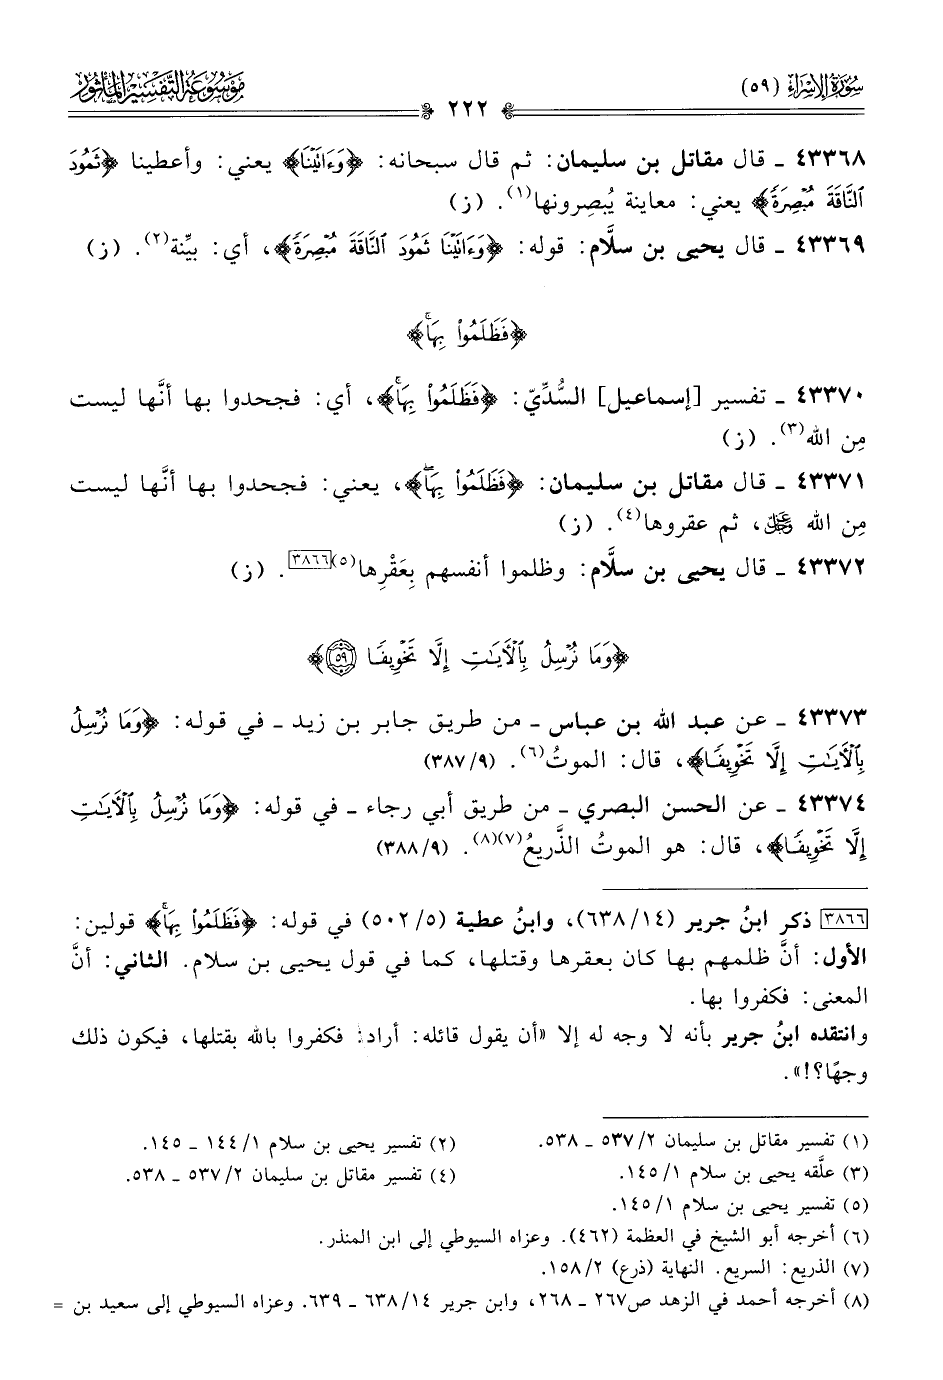 سُورَةُ الإِسْرَاءِ (٥٩)
٢٢٢
مَوْسُوعَةُ التَّفْسِيرِ المَأْثُورِ
٤٣٣٦٨ ـ قال مقاتل بن سليمان: ثم قال سبحانه: ﴿وَءَاتَيْنَا﴾ يعني: وأعطينا ﴿ثَمُودَ
ٱلنَّاقَةَ مُبْصِرَةً﴾ يعني: معاينة يُبصِرونها(١). (ز)
٤٣٣٦٩ ـ قال يحيى بن سلَّام: قوله: ﴿وَءَاتَيْنَا ثَمُودَ ٱلنَّاقَةَ مُبْصِرَةً﴾، أي: بيِّنة(٢). (ز)
﴿فَظَلَمُوا۟ بِهَاۚ﴾
٤٣٣٧٠ ـ تفسير [إسماعيل] السُّدِّيّ: ﴿فَظَلَمُوا۟ بِهَاۚ﴾، أي: فجحدوا بها أنَّها ليست
مِن الله(٣). (ز)
٤٣٣٧١ ـ قال مقاتل بن سليمان: ﴿فَظَلَمُوا۟ بِهَاۖ﴾، يعني: فجحدوا بها أنَّها ليست
مِن الله ﷿، ثم عقروها(٤). (ز)
٤٣٣٧٢ ـ قال يحيى بن سلَّام: وظلموا أنفسهم بِعَقْرِها(٥)[٣٨٦٦]. (ز)
﴿وَمَا نُرْسِلُ بِٱلْـَٔايَـٰتِ إِلَّا تَخْوِيفًا ٥٩﴾
٤٣٣٧٣ ـ عن عبد الله بن عباس ـ من طريق جابر بن زيد ـ في قوله: ﴿وَمَا نُرْسِلُ
بِٱلْـَٔايَـٰتِ إِلَّا تَخْوِيفًا﴾، قال: الموتُ(٦). (٩/ ٣٨٧)
٤٣٣٧٤ ـ عن الحسن البصري ـ من طريق أبي رجاء ـ في قوله: ﴿وَمَا نُرْسِلُ بِٱلْـَٔايَـٰتِ
إِلَّا تَخْوِيفًا﴾، قال: هو الموتُ الذَّريعُ(٧)(٨). (٩/ ٣٨٨)
[٣٨٦٦] ذكر ابنُ جرير (١٤/ ٦٣٨)، وابنُ عطية (٥/ ٥٠٢) في قوله: ﴿فَظَلَمُوا۟ بِهَاۚ﴾ قولين:
الأول: أنَّ ظلمهم بها كان بعقرها وقتلها، كما في قول يحيى بن سلام. الثاني: أنَّ
المعنى: فكفروا بها.
وانتقده ابنُ جرير بأنه لا وجه له إلا «أن يقول قائله: أراد: فكفروا بالله بقتلها، فيكون ذلك
وجهًا؟!».
(١) تفسير مقاتل بن سليمان ٢/ ٥٣٧ ـ ٥٣٨. (٢) تفسير يحيى بن سلام ١/ ١٤٤ ـ ١٤٥.
(٣) علَّقه يحيى بن سلام ١/ ١٤٥. (٤) تفسير مقاتل بن سليمان ٢/ ٥٣٧ ـ ٥٣٨.
(٥) تفسير يحيى بن سلام ١/ ١٤٥.
(٦) أخرجه أبو الشيخ في العظمة (٤٦٢). وعزاه السيوطي إلى ابن المنذر.
(٧) الذريع: السريع. النهاية (ذرع) ٢/ ١٥٨.
(٨) أخرجه أحمد في الزهد ص٢٦٧ ـ ٢٦٨، وابن جرير ١٤/ ٦٣٨ ـ ٦٣٩. وعزاه السيوطي إلى سعيد بن =